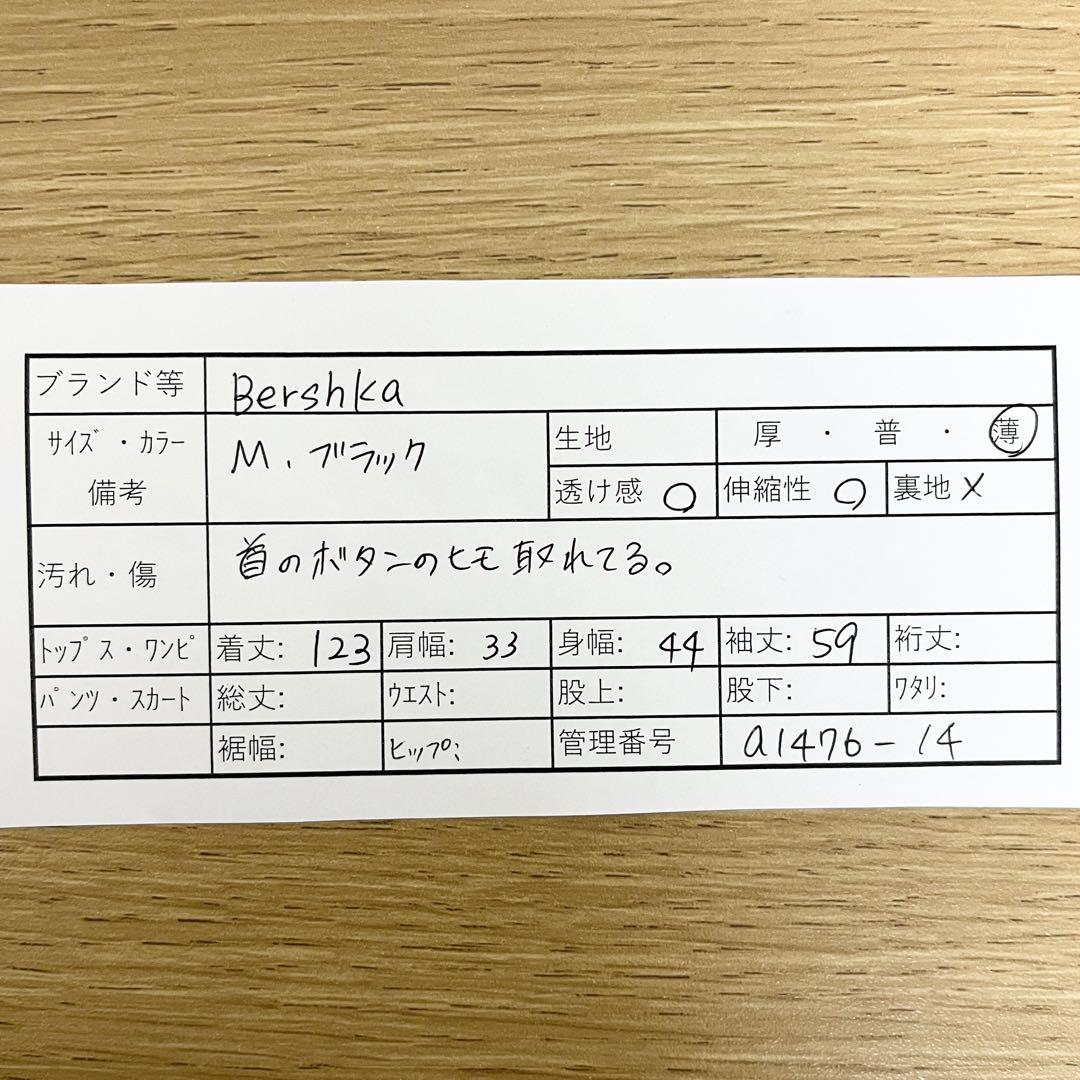 ブランド等 Bershka
サイズ・カラー M、ブラック 生地 厚・普・薄
備考 透け感 ○ 伸縮性 ○ 裏地 ×
汚れ・傷 首のボタンのヒモ取れてる。
トップス・ワンピ 着丈: 123 肩幅: 33 身幅: 44 袖丈: 59 裄丈:
パンツ・スカート 総丈: ウエスト: 股上: 股下: ワタリ:
裾幅: ヒップ: 管理番号 a1476-14